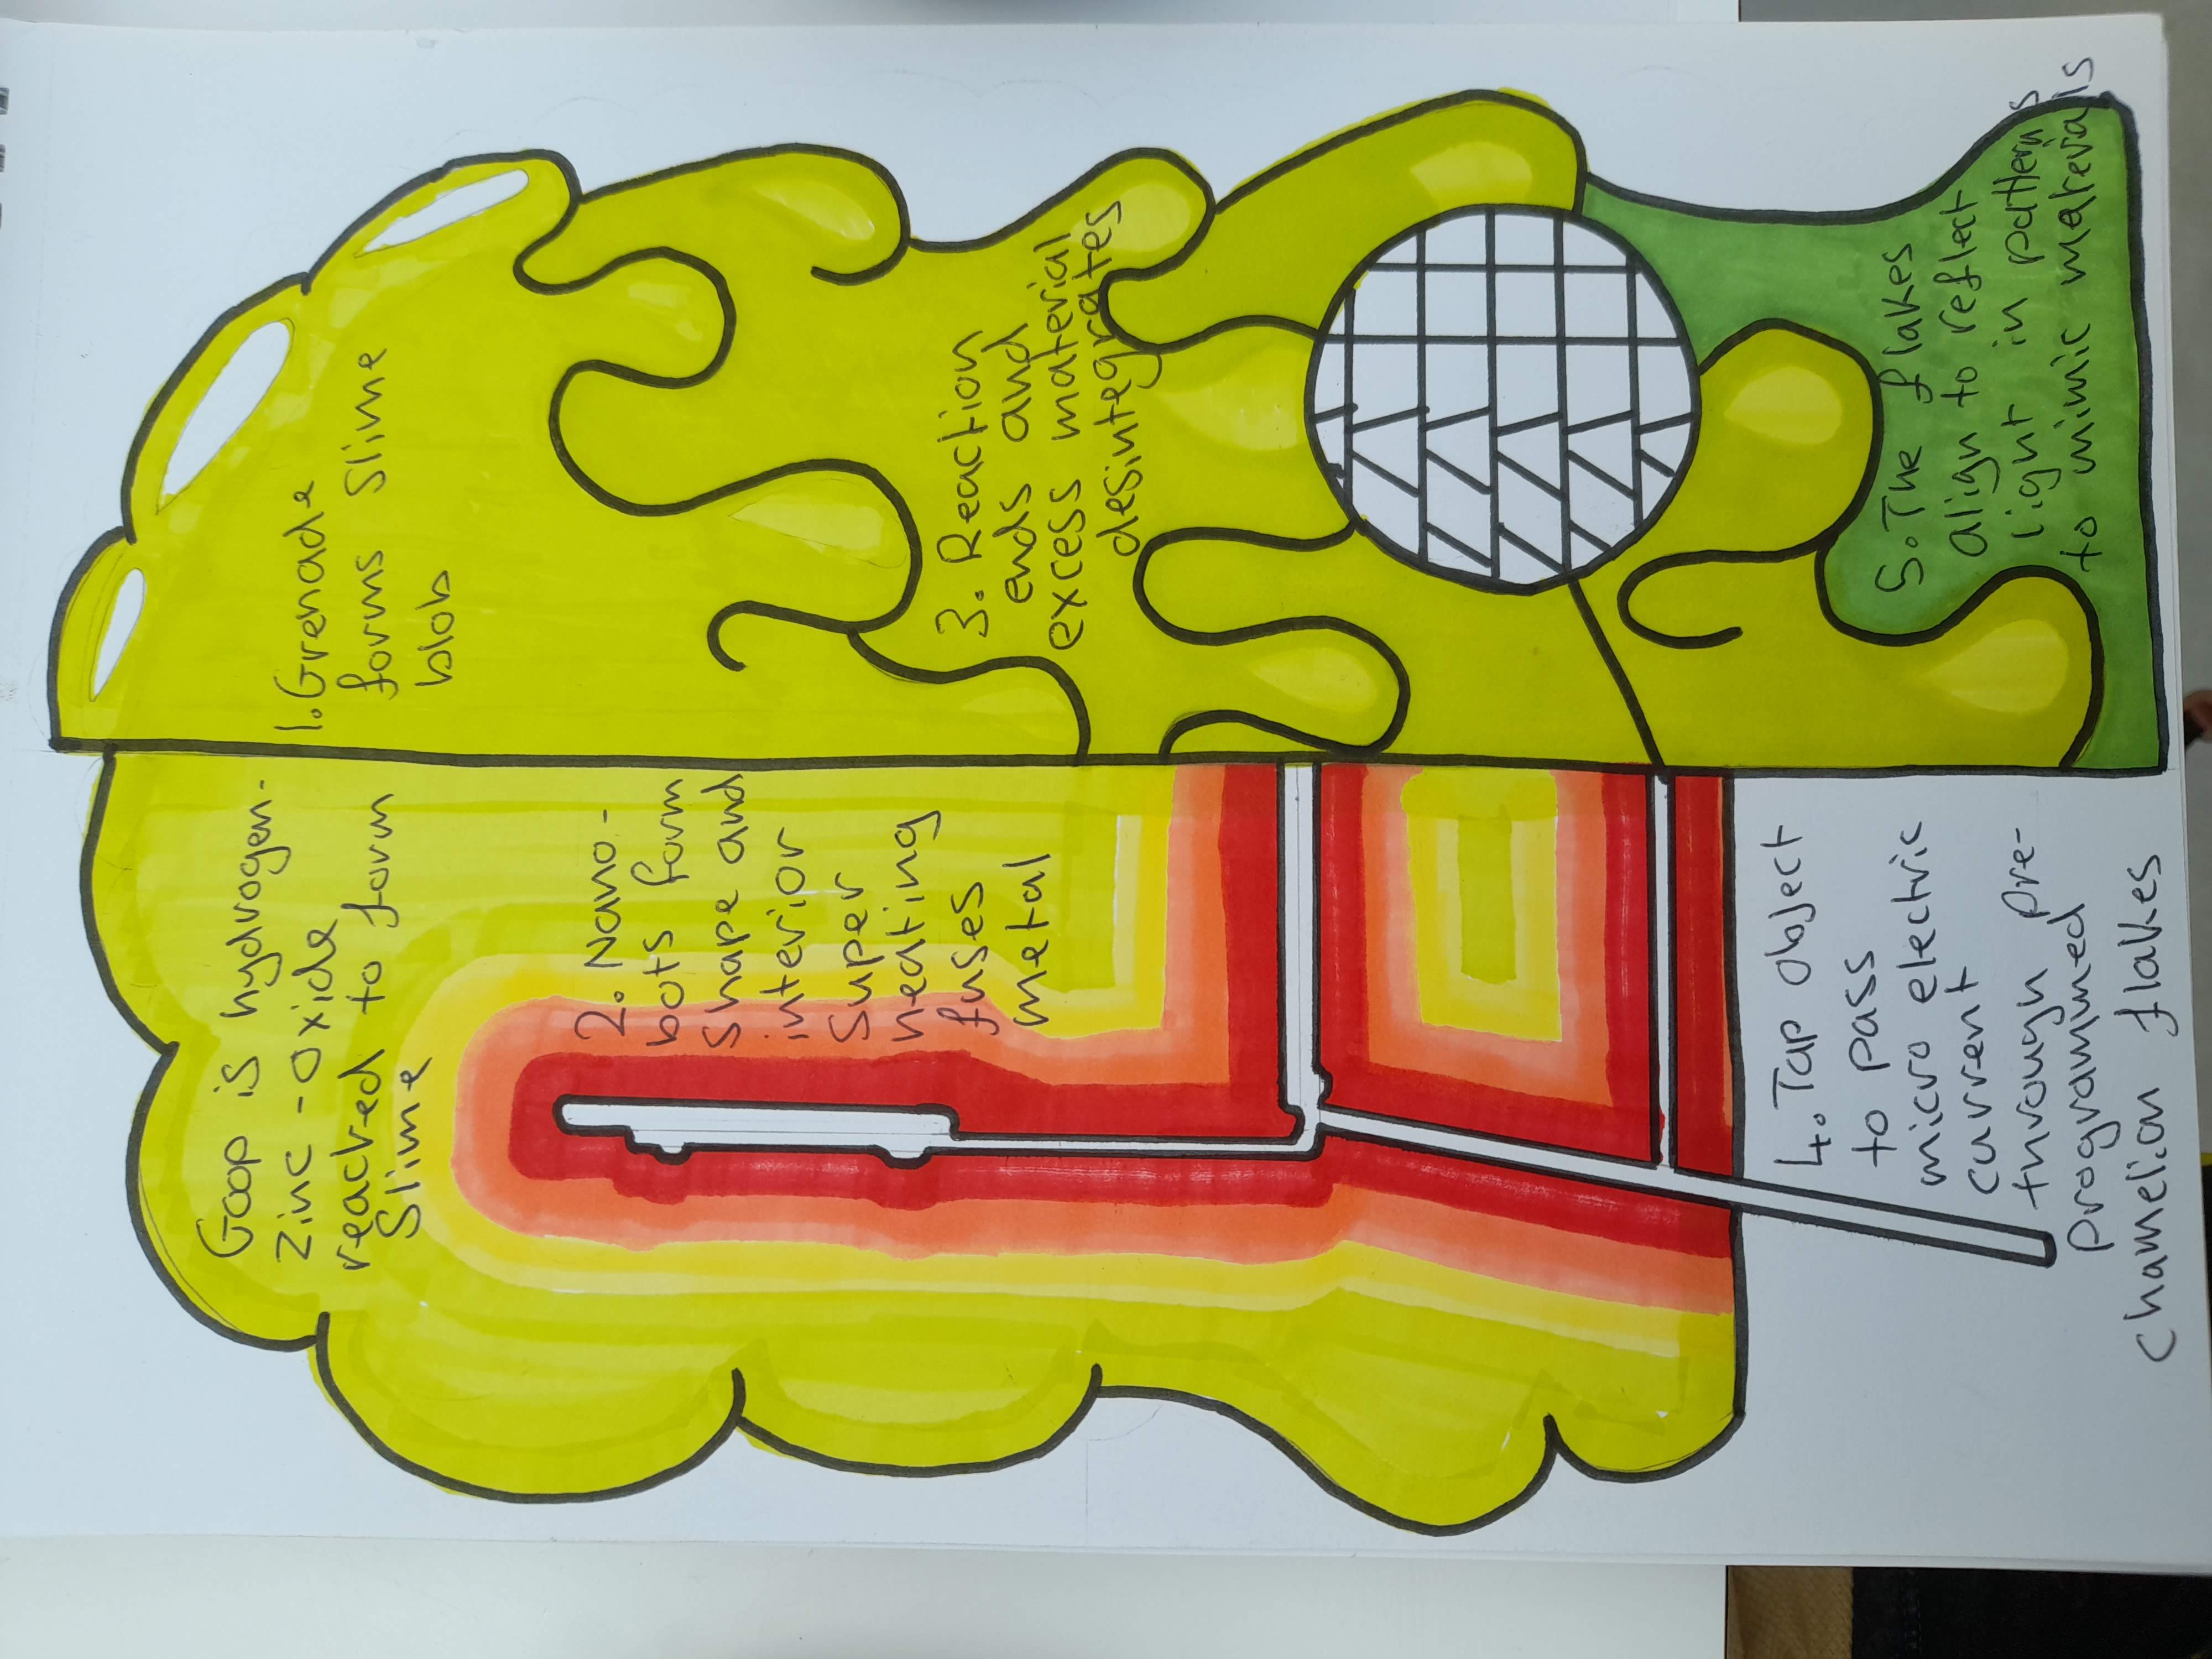 Goop is hydrogen-
zinc-oxide
reacted to form
Slime
1. Grenade
forms Slime
blob
2. Nano-
bots form
shape and
interior
super
heating
fuses
metal
3. Reaction
ends and
excess material
desintegrates
4. Tap object
to pass
micro electric
current
through pre-
programmed
chamelion flakes
5. The flakes
align to reflect
light in patterns
to mimic materials